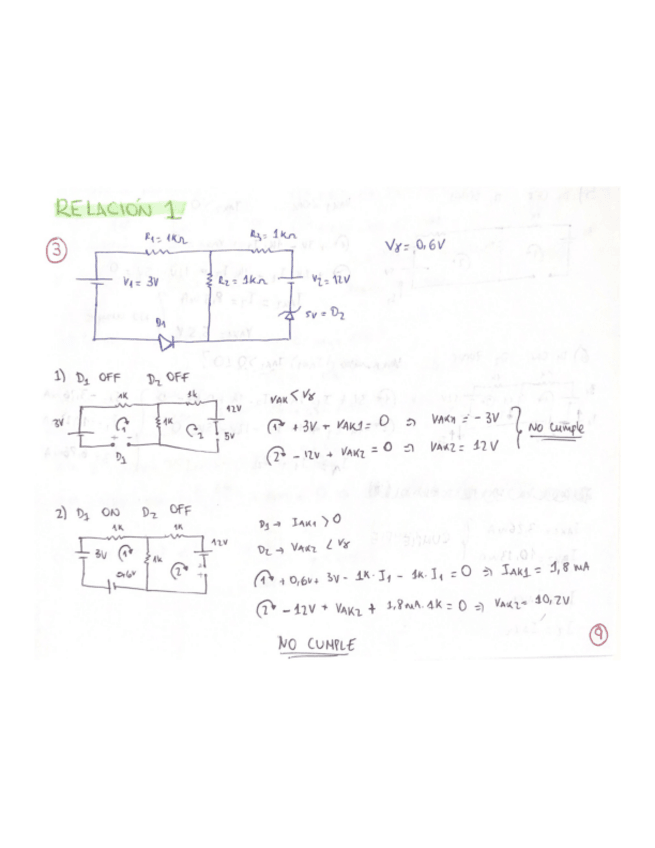 RELACIÓN 1
3
R1 = 1KΩ
R3 = 1KΩ
Vγ = 0,6V
V1 = 3V
R2 = 1KΩ
V2 = 12V
D1
5V = D2
1) D1 OFF D2 OFF
1K
1K
12V
3V
1
1K
2
5V
D1
VAK < Vγ
1 + 3V + VAK1 = 0 => VAK1 = -3V
2 - 12V + VAK2 = 0 => VAK2 = 12V
No cumple
2) D1 ON D2 OFF
1K
1K
12V
3V
1
1K
0,6V
2
D1 → IAK1 > 0
D2 → VAK2 < Vγ
1 + 0,6V + 3V - 1K · I1 - 1K · I1 = 0 => IAK1 = 1,8 mA
2 - 12V + VAK2 + 1,8mA · 1K = 0 => VAK2 = 10,2V
NO CUMPLE
9